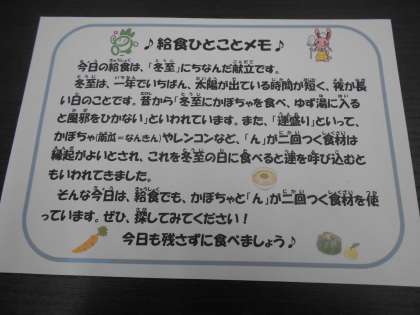 ♪給食ひとことメモ♪
今日の給食は、「冬至」にちなんだ献立です。
冬至は、一年でいちばん、太陽が出ている時間が短く、夜が長
い日のことです。昔から「冬至にかぼちゃを食べ、ゆず湯に入る
と風邪をひかない」といわれています。また、「運盛り」といって、
かぼちゃ(南瓜=なんきん)やレンコンなど、「ん」が二回つく食材は
縁起がよいとされ、これを冬至の日に食べると運を呼び込むと
もいわれてきました。
そんな今日は、給食でも、かぼちゃと「ん」が二回つく食材を使
っています。ぜひ、探してみてください!
今日も残さずに食べましょう♪